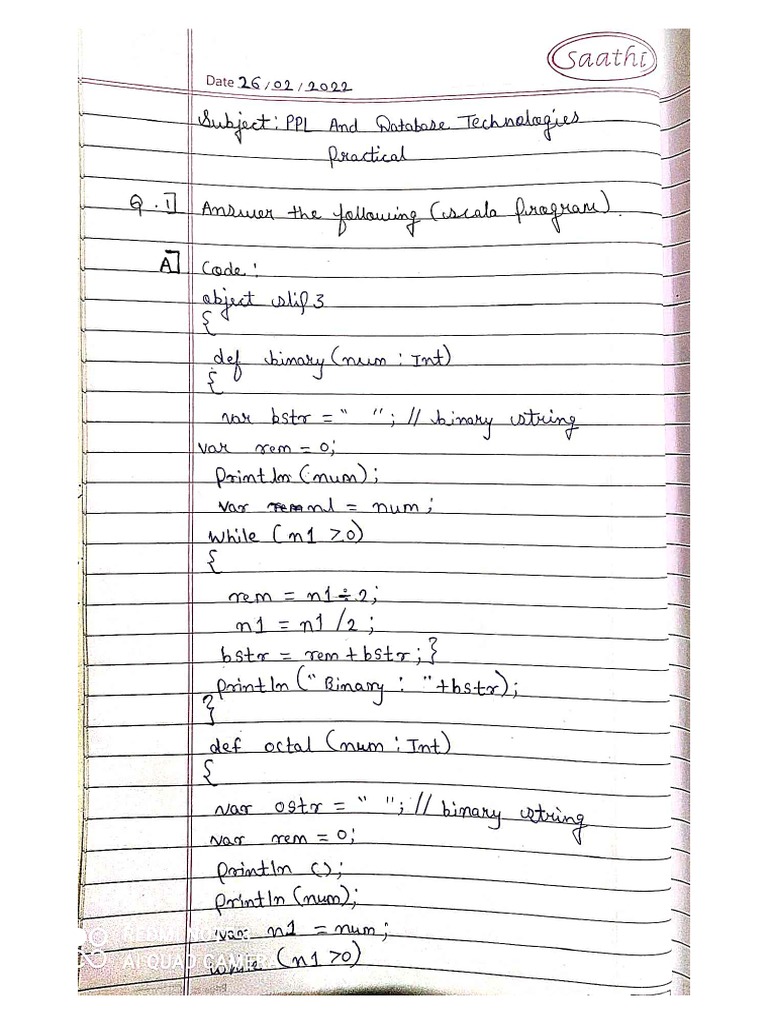 Saathi
Date 26/02/2022
Subject: PPL And Database Technologies
Practical
Q.1] Answer the following (scala program).
A] Code:
object slip3
{
def binary(num: Int)
{
var bstr = " "; // binary string
var rem = 0;
println(num);
var n1 = num;
while (n1 >0)
{
rem = n1÷2;
n1 = n1/2;
bstr = rem+bstr;}
println("Binary: "+bstr);
}
def octal (num: Int)
{
var ostr = " "; // binary string
var rem = 0;
println ();
println(num);
var n1 = num;
while (n1 >0)
AI QUAD CAMERA